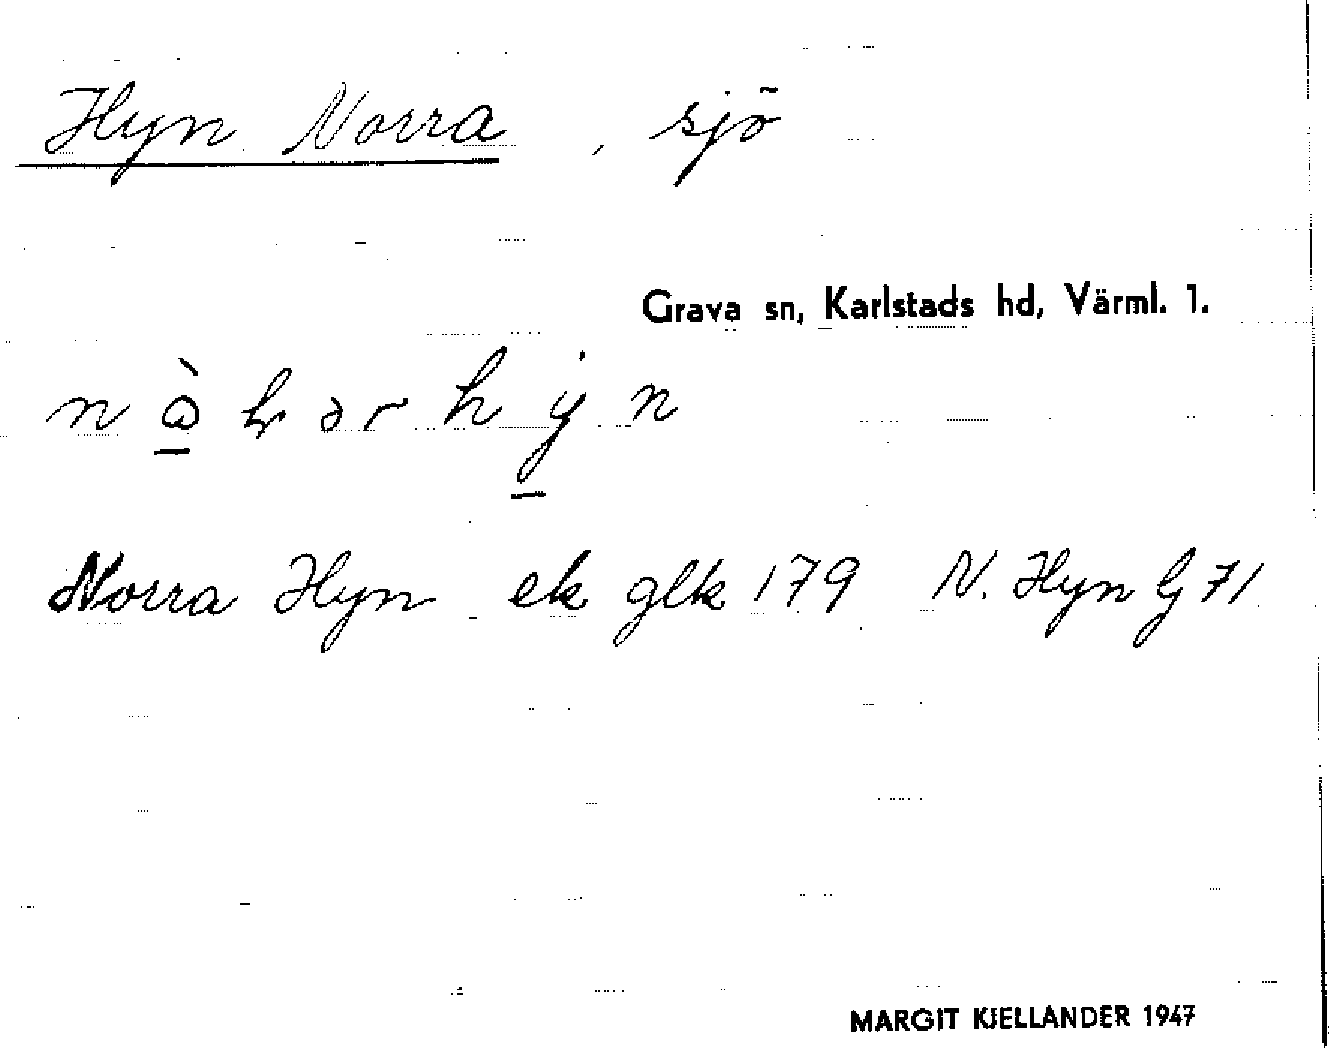 Hyn Norra, sjö
Grava sn, Karlstads hd, Värml. 1.
Norra Hyn ek glk 179 N. Hyn G 71
MARGIT KJELLANDER 1947